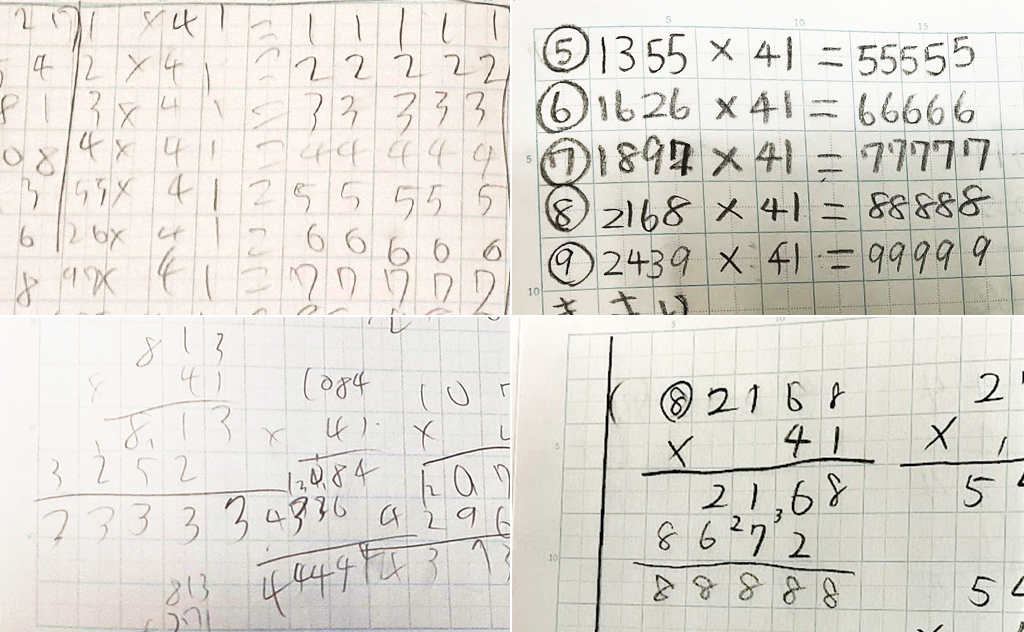 2 7 1 × 4 1 = 1 1 1 1 1
5 4 2 × 4 1 = 2 2 2 2 2
8 1 3 × 4 1 = 3 3 3 3 3
0 8 4 × 4 1 = 4 4 4 4 4
3 55 × 4 1 = 5 5 5 5 5
6 26 × 4 1 = 6 6 6 6 6
8 97 × 4 1 = 7 7 7 7 7
⑤ 1355 × 41 = 55555
⑥ 1626 × 41 = 66666
⑦ 1897 × 41 = 77777
⑧ 2168 × 41 = 88888
⑨ 2439 × 41 = 99999
10
813
× 41
813
3252
33333
813
1084
× 41
1084
4336
4444
10
×
10
4296
43
⑧ 2168
× 41
2168
8672
88888
2
×
5
5